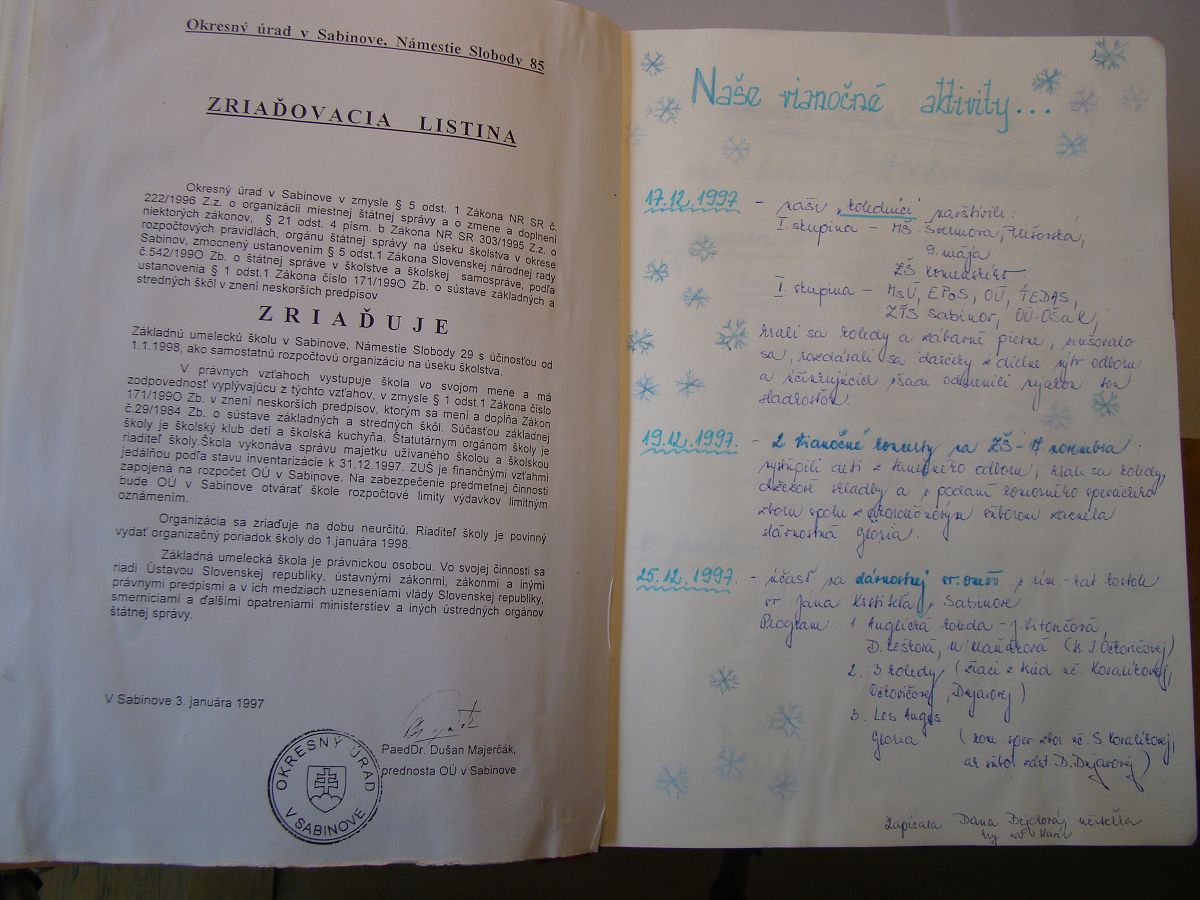 Okresný úrad v Sabinove, Námestie Slobody 85
ZRIAĎOVACIA LISTINA
Okresný úrad v Sabinove v zmysle § 5 odst. 1 Zákona NR SR č.
222/1996 Z.z. o organizácii miestnej štátnej správy a o zmene a doplnení
niektorých zákonov, § 21 odst. 4 písm. b Zákona NR SR 303/1995 Z.z. o
rozpočtových pravidlách, orgánu štátnej správy na úseku školstva v okrese
Sabinov, zmocnený ustanovením § 5 odst.1 Zákona Slovenskej národnej rady
č.542/199O Zb. o štátnej správe v školstve a školskej samospráve, podľa
ustanovenia § 1 odst.1 Zákona číslo 171/199O Zb. o sústave základných a
stredných škôl v znení neskorších predpisov
ZRIAĎUJE
Základnú umeleckú školu v Sabinove, Námestie Slobody 29 s účinosťou od
1.1.1998, ako samostatnú rozpočtovú organizáciu na úseku školstva.
V právnych vzťahoch vystupuje škola vo svojom mene a má
zodpovednosť vyplývajúcu z týchto vzťahov. v zmysle § 1 odst.1 Zákona číslo
171/199O Zb. v znení neskorších predpisov, ktorým sa mení a dopĺňa Zákon
č.29/1984 Zb. o sústave základných a stredných škôl. Súčasťou základnej
školy je školský klub detí a školská kuchyňa. Štatutárnym orgánom školy je
riaditeľ školy.Škola vykonáva správu majetku užívaného školou a školskou
jedálňou podľa stavu inventarizácie k 31.12.1997. ZUŠ je finančnými vzťahmi
zapojená na rozpočet OÚ v Sabinove. Na zabezpečenie predmetnej činnosti
bude OÚ v Sabinove otvárať škole rozpočtové limity výdavkov limitným
oznámením.
Organizácia sa zriaďuje na dobu neurčitú. Riaditeľ školy je povinný
vydať organizačný poriadok školy do 1.januára 1998.
Základná umelecká škola je právnickou osobou. Vo svojej činnosti sa
riadi Ústavou Slovenskej republiky, ústavnými zákonmi, zákonmi a inými
právnymi predpismi a v ich medziach uzneseniami vlády Slovenskej republiky,
smernicami a ďalšími opatreniami ministerstiev a iných ústredných orgánov
štátnej správy.
V Sabinove 3. januára 1997
PaedDr. Dušan Majerčák,
prednosta OÚ v Sabinove
OKRESNÝ ÚRAD
V SABINOVE
Naše vianočné aktivity...
17.12.1997 - naši "koledníci" navštívili:
I. skupina - MŠ
9. mája
ZŠ Komenského
I. skupina - MsÚ, EPoS, OÚ, TEDAS,
ZŤS Sabinov, OÚ-OŠaK,
hrali sa koledy a zábavné piesne, vinšovalo
sa, rozdávali sa darčeky z dielne výtv. odboru
a účinkujúcich všade odmenili nejakou tou
sladkosťou.
19.12.1997. - 2 Vianočné koncerty na ZŠ - 17. novembra:
vystúpili deti z tanečného odboru, hrali sa koledy,
džezové skladby a v podaní komorného speváckeho
zboru spolu z súborom zaznela
slávnostná Gloria.
25.12.1997. - účasť na slávnostnej sv. omši v rím.-kat. kostole
sv. Jána Krstiteľa v Sabinove
Program: 1. Anglická koleda -
D. Lešková, (k. J. Octovičovej)
2. 3 koledy (žiaci z tried uč. Kovalíkovej,
Octovičovej,
3. Les Anges
Gloria (kom. spev. zbor uč. S. Kovalíkovej,
Zapísala Dana učiteľka